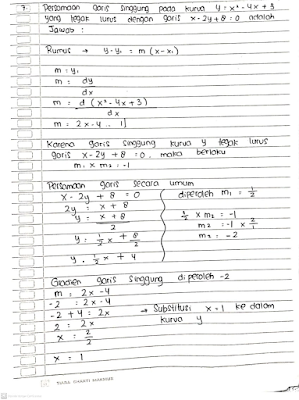 7. Persamaan garis singgung pada kurva y = x² - 4x + 3
yang tegak lurus dengan garis x - 2y + 8 = 0 adalah
Jawab :
Rumus → y - y₁ = m (x - x₁)
m = y₁
m = dy
dx
m = d (x² - 4x + 3)
dx
m = 2x - 4 .. 1]
Karena garis singgung kurva y tegak lurus
garis x - 2y + 8 = 0, maka berlaku
m₁ x m₂ = -1
Persamaan garis secara umum
x - 2y + 8 = 0
2y = x + 8
y = x + 8
2
y = 1/2 x + 8/2
y = 1/2 x + 4
diperoleh m₁ = 1/2
1/2 x m₂ = -1
m₂ = -1 x 2/1
m₂ = -2
Gradien garis singgung diperoleh -2
m = 2x - 4
-2 = 2x - 4
-2 + 4 = 2x
2 = 2x
x = 2
2
x = 1
→ Substitusi x = 1 ke dalam
kurva y